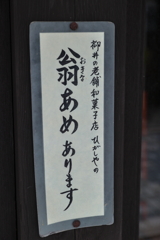 柳井の老舗和菓子店 ひがしやの
翁あめあります
おきな